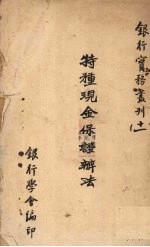 銀行實務叢刊(十一)
特種現金保證辦法
銀行學會編印